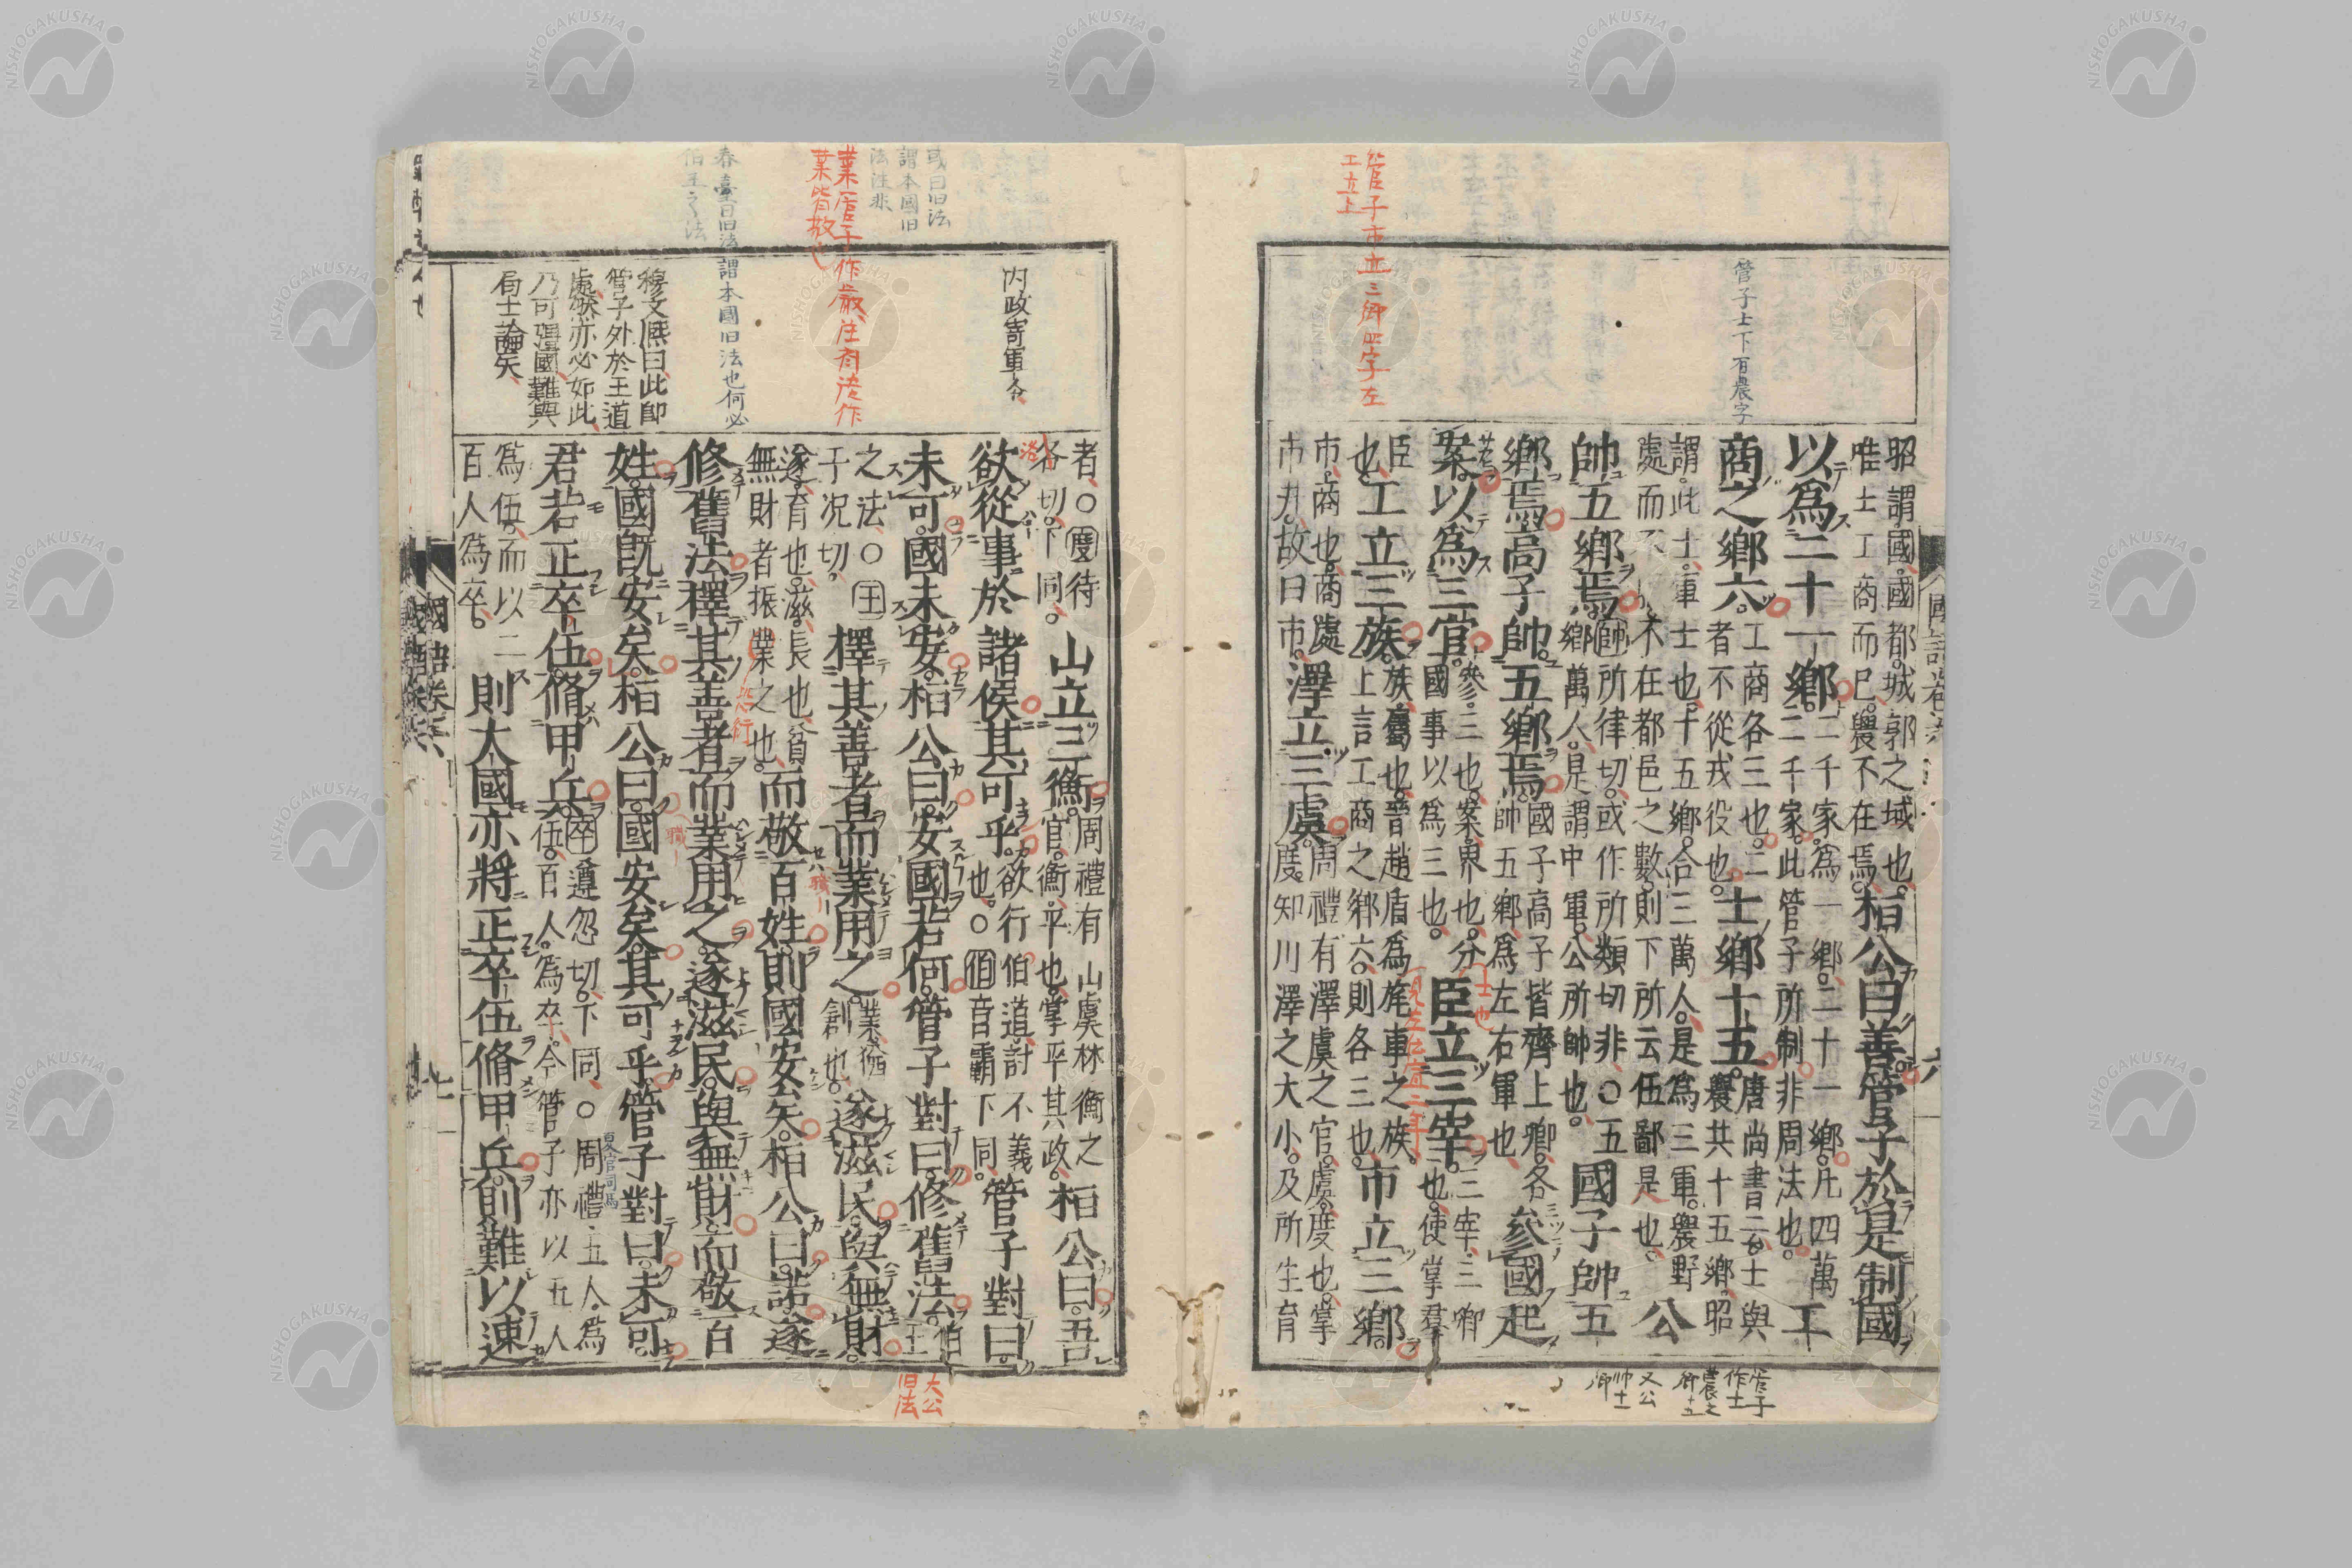 管子士下有農字
管子市立三鄉四字左
工立上
昭謂國國都城郭之域也
唯士工商而已農不在焉
桓公曰善管子於是制國
以爲二十一鄉
二千家爲一鄉二十一鄉凡四萬
二千家此管子所制非周法也
工
商之鄉六
工商各三也二
者不從戎役也
士鄉十五
唐尚書云士與
農共十五鄉昭
謂此士軍士也十五鄉合三萬人是爲三軍農野
處而不 不在都邑之數則下所云伍鄙是也
公
帥五鄉焉
帥所律切或作所類切非○五
鄉萬人是謂中軍公所帥也
國子帥五
鄉焉高子帥五鄉焉
國子高子皆齊上卿各
帥五鄉爲左右軍也
參國起
案以爲三官
參三也案界也分
國事以爲三也
臣立三宰
三宰三卿
也使掌羣
臣
也
工立三族
族屬也晉趙盾爲旄車之族
上言工商之鄉六則各三也
市立三鄉
市商也商處
市井故曰市
澤立三虞
周禮有澤虞之官虞度也掌
度知川澤之大小及所生育
見左傳宣二年
管子
作士
農之
鄉十五
又公
帥十一
鄉
國語卷六
六
內政寄軍令
或曰旧法
謂本國旧
法注非
業管子作嚴注有
業皆敬也
春臺曰旧法謂本國旧法也何必
伯王之法
穆文熈曰此即
管子外於王道
處然亦必如此
乃可彊國難與
局士論矣
者○度待
各切下同
山立三衡
周禮有山虞林衡之
官衡平也掌平其政
桓公曰吾
欲從事於諸侯其可乎
欲行伯道討不義
也○伯音霸下同
管子對曰
未可國未安桓公曰安國若何管子對曰修舊法
伯
王
之法○王
于况切
擇其善者而業用之
業猶
創也
遂滋民與無財
遂育也滋長也貧
無財者振業之也
而敬百姓則國安矣桓公曰諾遂
修舊法擇其善者而業用之遂滋民與無財而敬百
姓國旣安矣桓公曰國安矣其可乎管子對曰未可
君若正卒伍脩甲兵
卒遵忽切下同○周禮五人爲
伍百人爲卒今管子亦以五人
爲伍而以二
百人爲卒
則大國亦將正卒伍脩甲兵則難以速
夏官司馬
大公
旧法
國語卷六
七